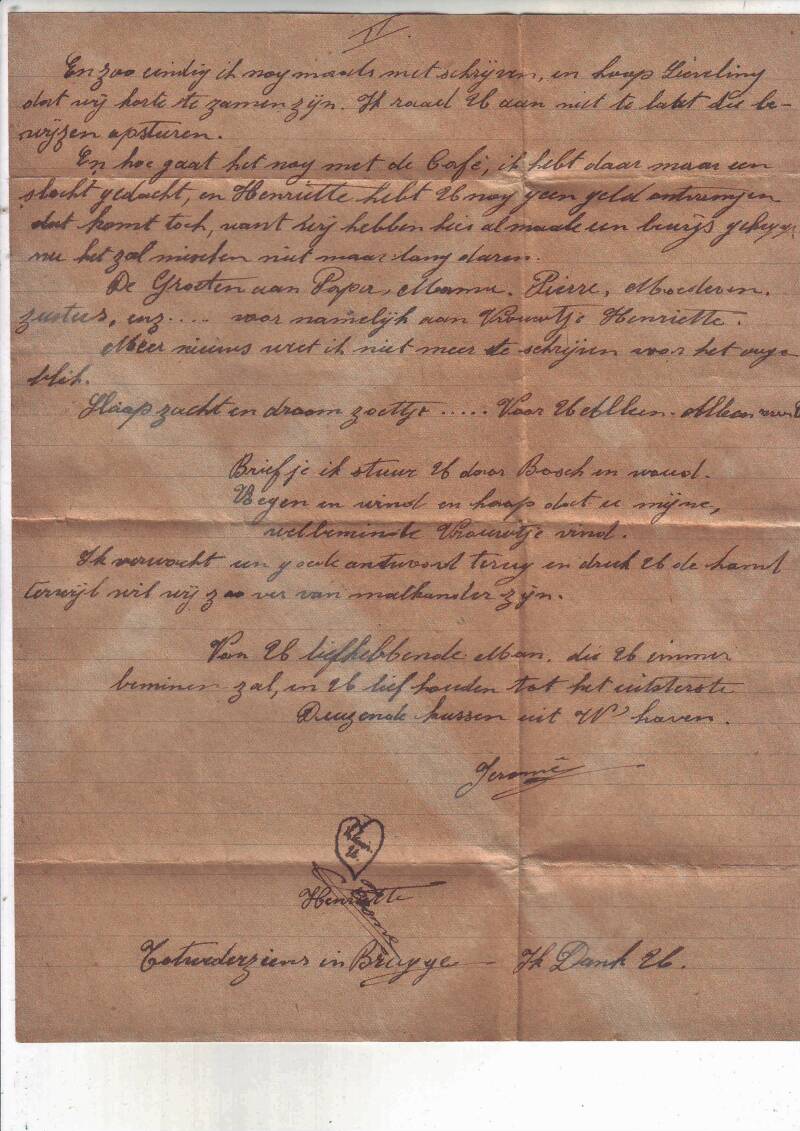 En zoo eindig ik nog maals met schrijven, en hoop Lieveling
dat wij korte te zamen zijn. Ik raad U aan niet te laat die be-
wijzen opsturen.
En hoe gaat het nog met de Café, ik hebt daar maar een
slecht gedacht, en Henriette hebt U nog geen geld ontvangen
dat komt toch, want wij hebben hier almaale een bewijs
nu het zal misschen niet maar lang duren.
De Groeten aan Papa, Mama. Pierre, Moeder en.
zusters, enz..... voor namelijk aan Vrouwtje Henriette.
Meer nieuws weet ik niet meer te schrijven voor het ooge
blik.
Slaap zacht en droom zoetjes ..... Voor U Alleen. Alleen voor U
Briefje ik stuur U door Bosch en woud.
Regen en wind en hoop dat u mijne,
welbeminde Vrouwtje vind.
Ik verwacht een goede antwoord terug en druk U de hand
terwijl wij zoo ver van malkander zijn.
Van U liefhebbende Man. die U immer
beminen zal, en U lief houden tot het uitsterste
Duizende kussen uit W'haven.
Jeromé
U.
Henriette
Jerome
Totwederziens in Brugge - Ik Dank U.